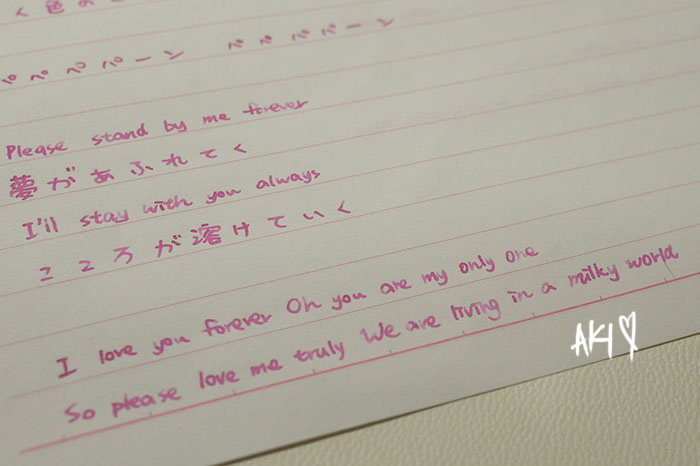 く色の
パパパパーン パパパパーン
Please stand by me forever
夢があふれてく
I'll stay with you always
こころが溶けていく
I love you forever Oh you are my only one
So please love me truly We are living in a milky world
AKI♡